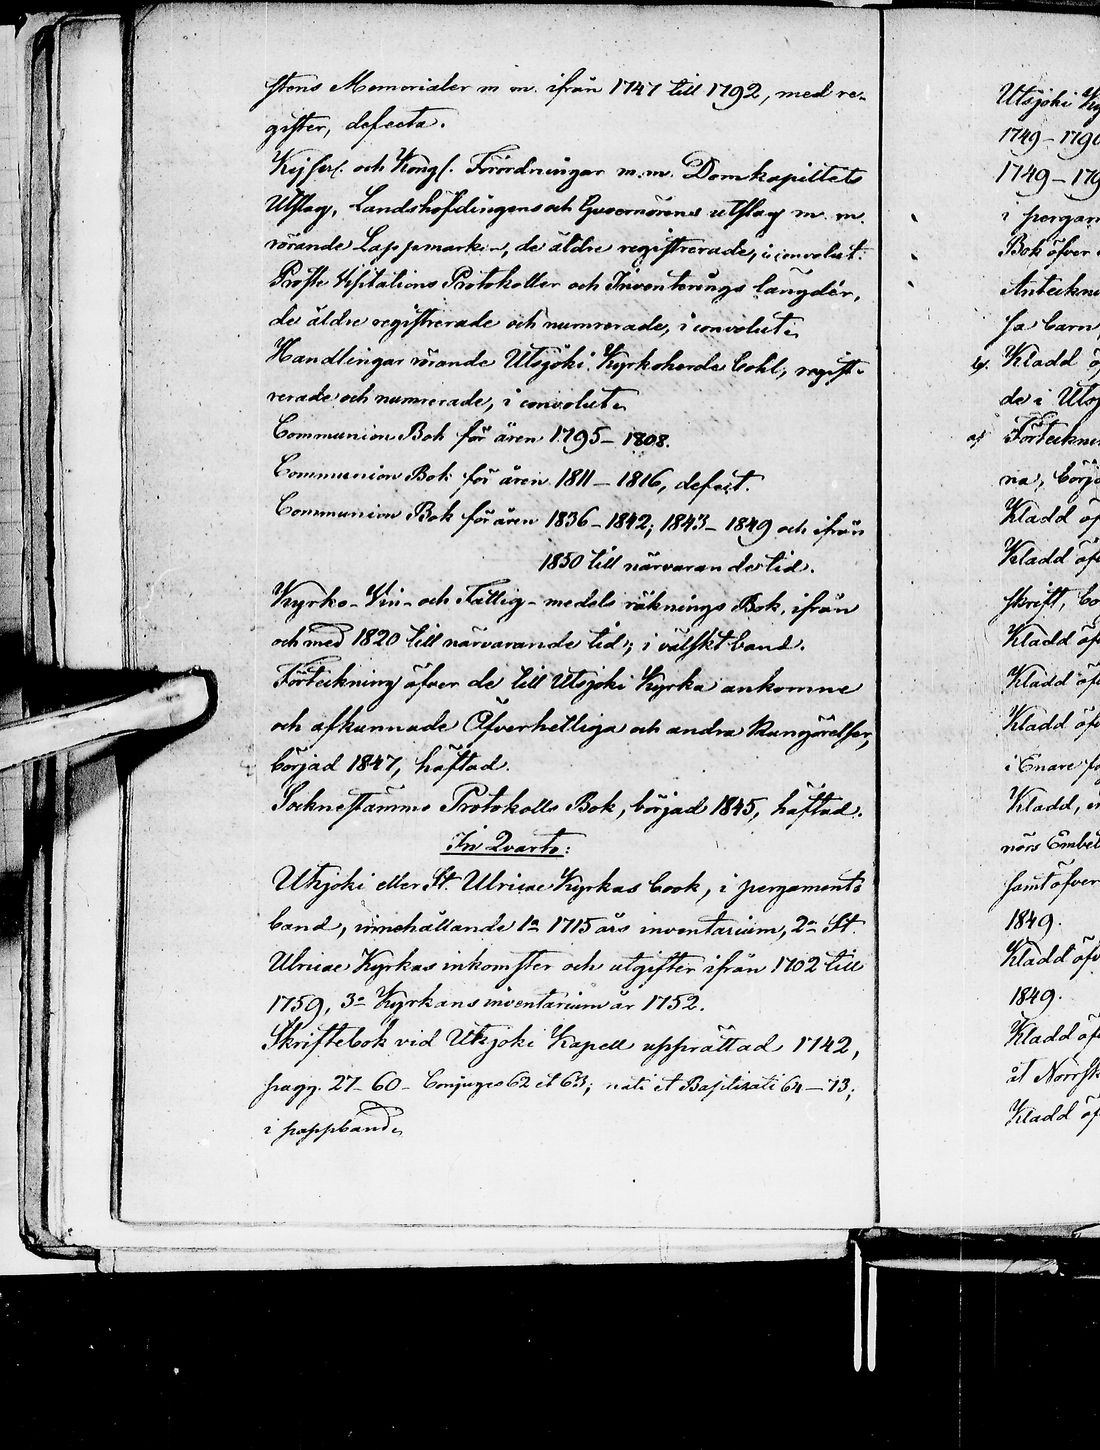 stens Memorialer m m. ifrån 1747 till 1792, med re-
gister, defecta.
Kejserl. och Kongl. Förordningar m.m. Domkapitlets
Utslag, Landshöfdingens och Guvernörens utslag m. m.
rörande Lappmarken, de äldre registrerade, i convolut.
Profte Visitations Protokoller och Inventerings längder,
de äldre registrerade och numrerade, i convolut.
Handlingar rörande Utsjoki Kyrkoherde bohl, regist-
rerade och numrerade, i convolut.
Communion Bok för åren 1795–1808.
Communion Bok för åren 1811–1816, defect.
Communion Bok för åren 1836–1842; 1843–1849 och ifrån
1850 till närvarande tid.
Kyrko- Vin- och Fattig-medels räknings Bok, ifrån
och med 1820 till närvarande tid; i välskt band.
Förteckning öfver de till Utsjoki Kyrka ankomne
och afkunnade Öfverhetliga och andra kungörelser,
börjad 1847, häftad.
Sockenstämmo Protokolls Bok, börjad 1845, häftad.
In Qvarto:
Utsjoki eller St. Ulricae Kyrkas book, i pergaments
band, innehållande 1o 1715 års inventarium, 2o St.
Ulricae Kyrkas inkomster och utgifter ifrån 1702 till
1759, 3o Kyrkans inventarium år 1752.
Skriftebok vid Utsjoki Kapell upprättad 1742,
pagg. 27–60– Conjuges 62 et 63; nati et Baptizati 64–73;
i pappband.
Utsjoki
1749–1790
1749–179
i pergam
Bok öfver
Anteckn
sa barn
Kladd öf
de i Utsj
Förteckn
na, börj
Kladd öf
Kladd öf
skrift, bo
Kladd öf
Kladd öf
Kladd öf
i Enare
Kladd,
nörs Embet
samt öfver
1849.
Kladd öfv
1849.
Kladd öf
åt Norrsk
Kladd öf